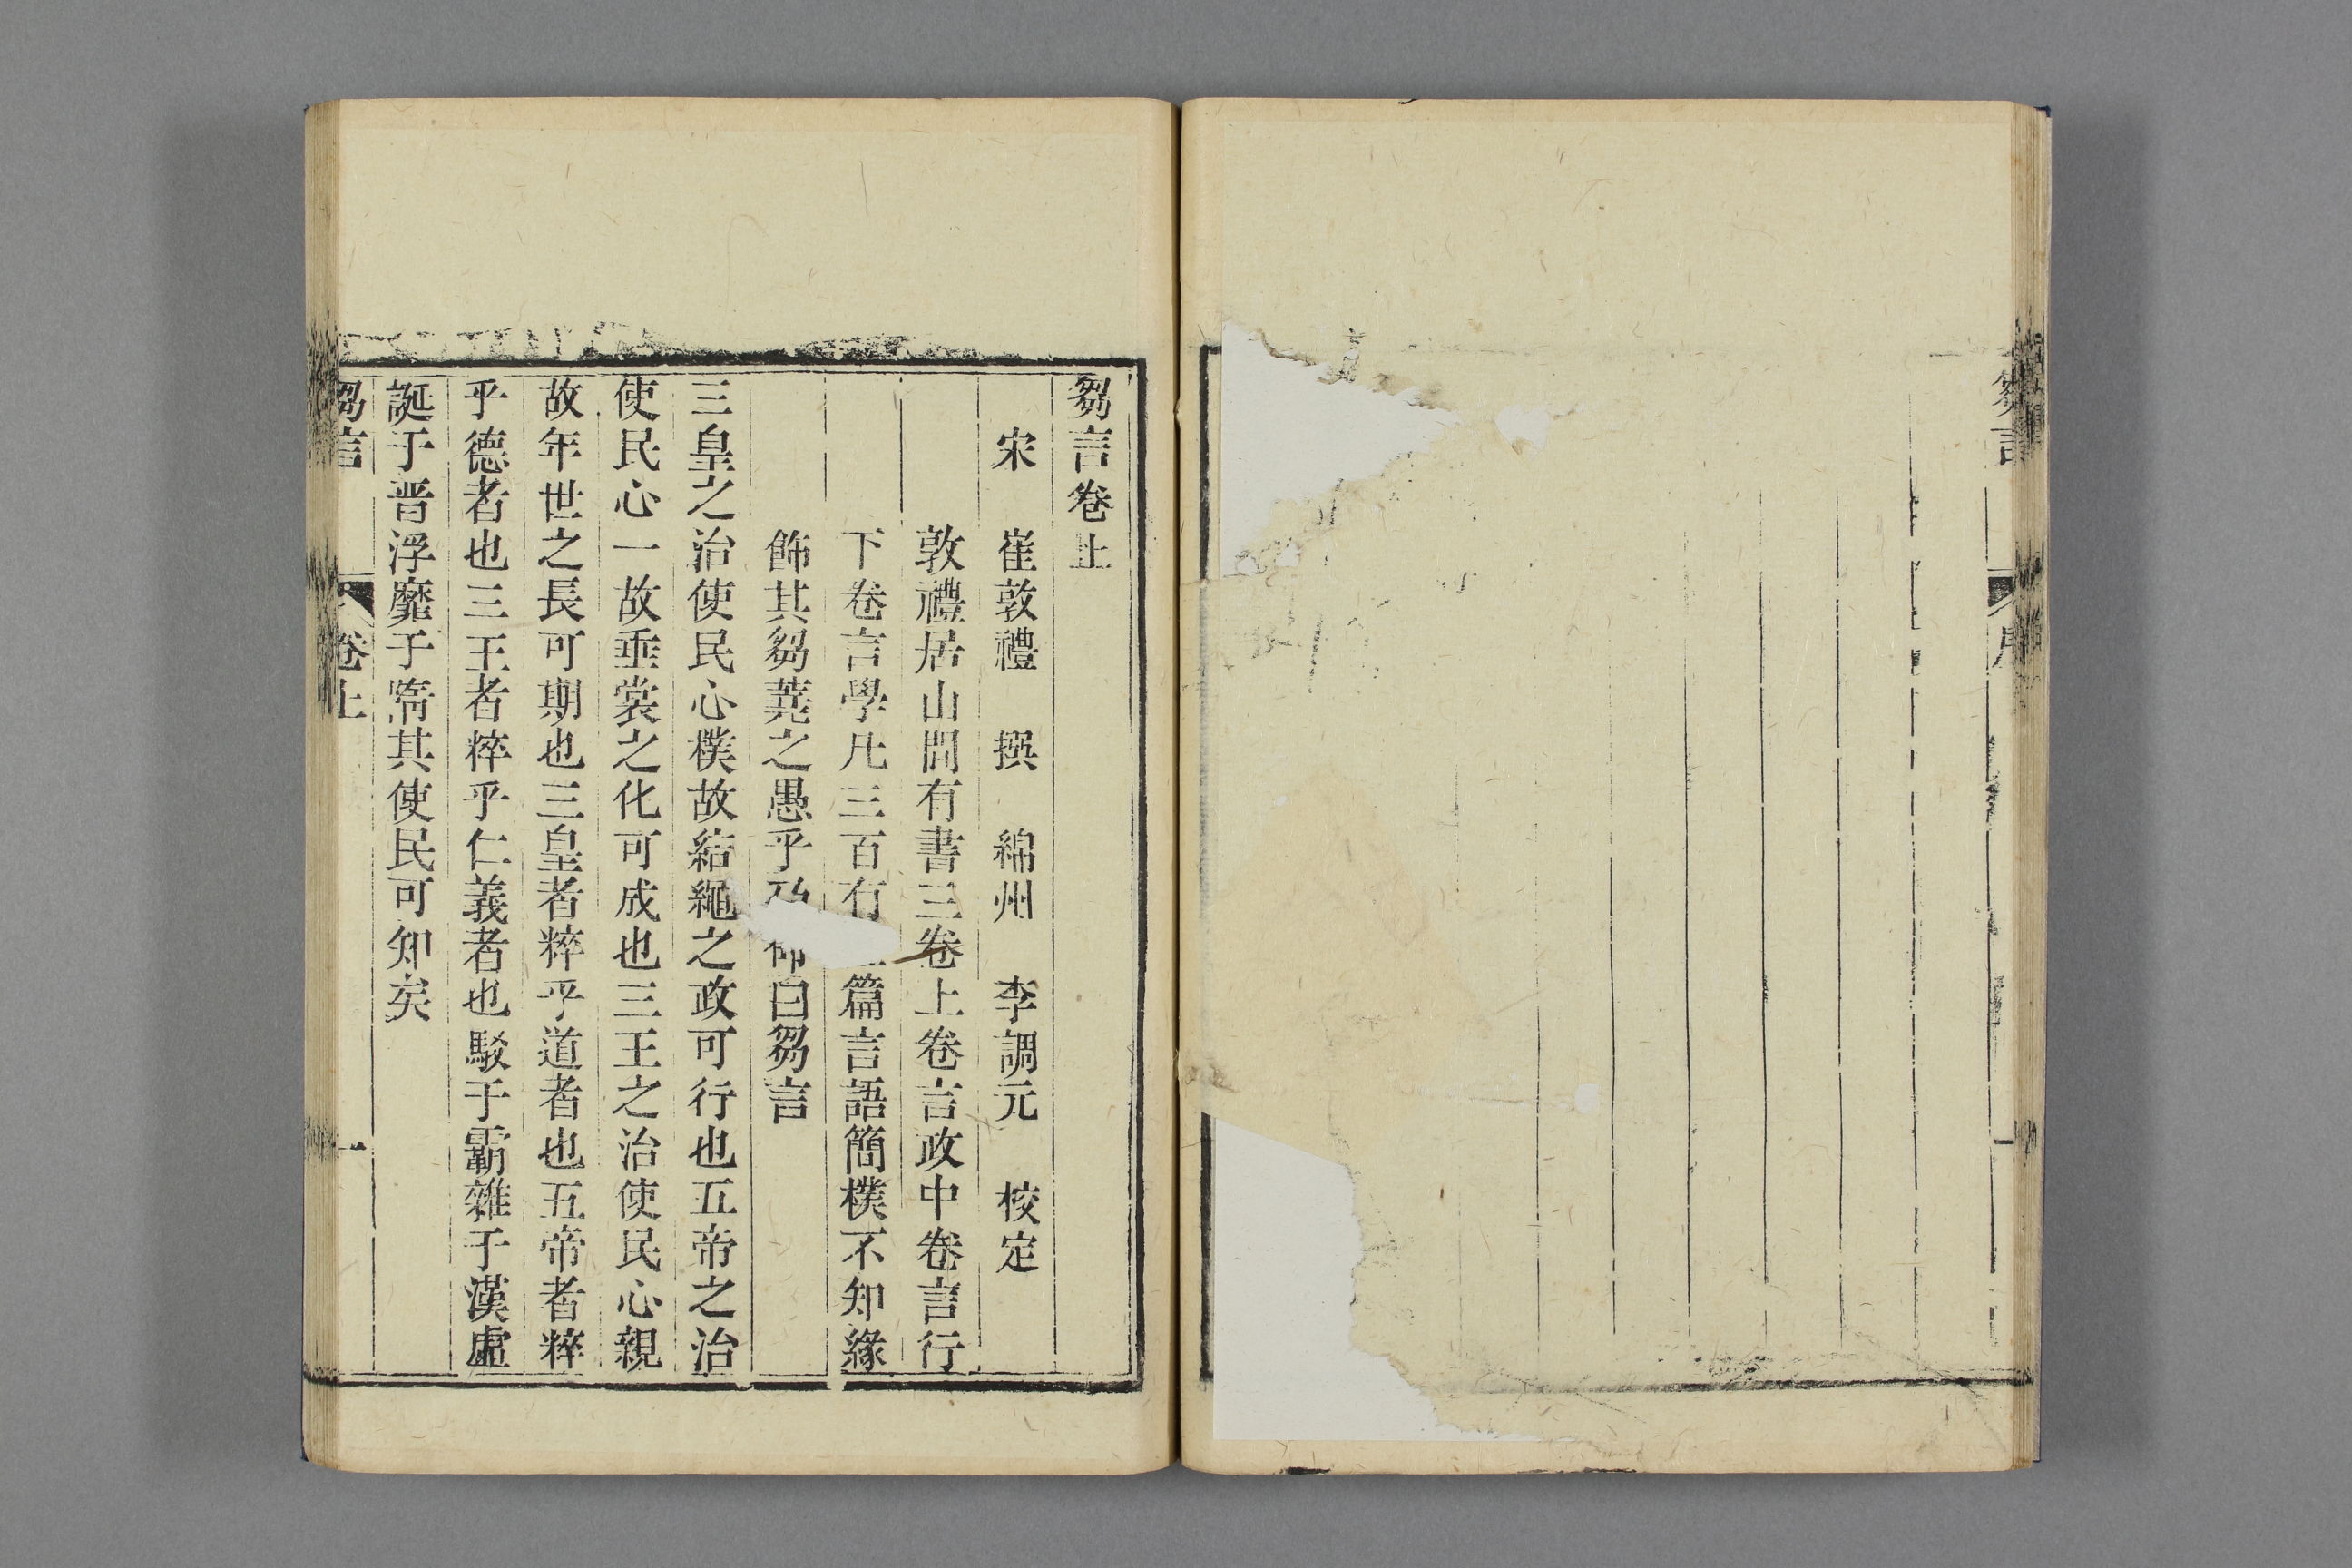 芻言
序
一
芻言卷上
宋 崔敦禮 撰 綿州 李調元 校定
敦禮居山間有書三卷上卷言政中卷言行
下卷言學凡三百有篇言語簡樸不知緣
飾其芻蕘之愚乎乃曰芻言
三皇之治使民心樸故結繩之政可行也五帝之治
使民心一故垂裳之化可成也三王之治使民心親
故年世之長可期也三皇者粹乎道者也五帝者粹
乎德者也三王者粹乎仁義者也駁于霸雜于漢虛
誕于晉浮靡于隋其使民可知矣
芻言 卷上 一